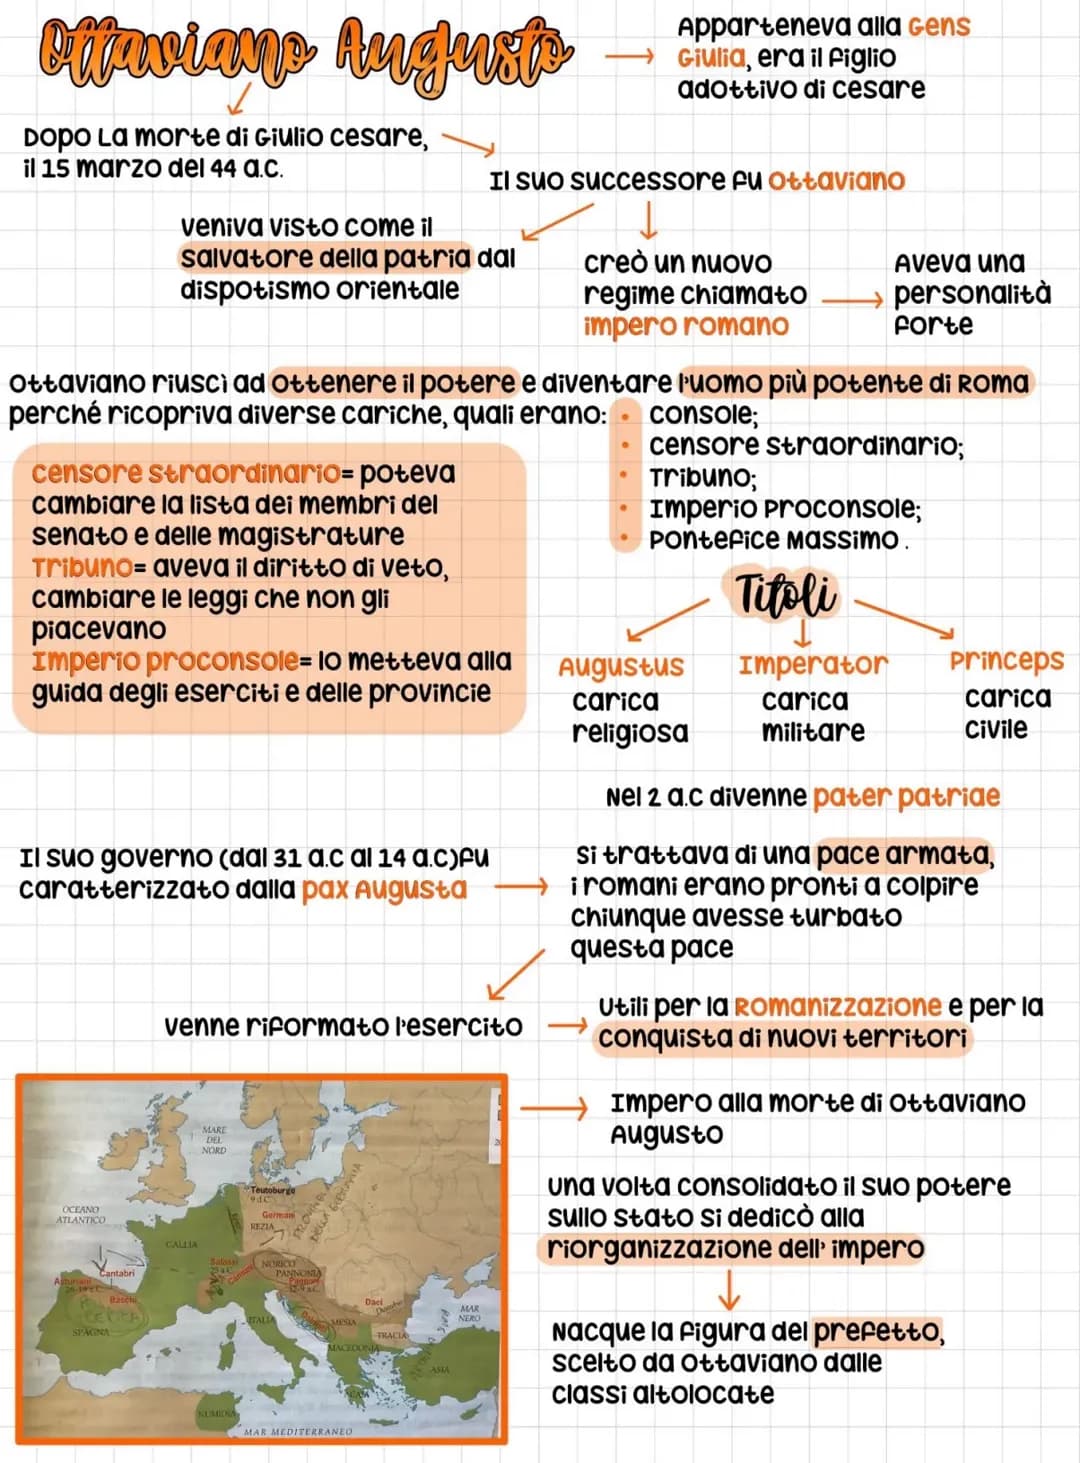 Ottaviano Augusto
Apparteneva alla Gens
Giulia, era il figlio
adottivo di cesare
Dopo La morte di Giulio cesare,
il 15 marzo del 44 a.c.
Il suo successore fu Ottaviano
veniva visto come il
salvatore della patria dal
dispotismo orientale
creò un nuovo
regime chiamato
impero romano
Aveva una
personalità
forte
Ottaviano riuscì ad ottenere il potere e diventare l'uomo più potente di Roma
perché ricopriva diverse cariche, quali erano:
• console;
• censore straordinario;
• Tribuno;
• Imperio Proconsole;
• Pontefice Massimo.
censore straordinario= poteva
cambiare la lista dei membri del
senato e delle magistrature
Tribuno= aveva il diritto di veto,
cambiare le leggi che non gli
piacevano
Imperio proconsole= lo metteva alla
guida degli eserciti e delle provincie
Titoli
Augustus
carica
religiosa
Imperator
carica
militare
Princeps
carica
civile
Nel 2 a.c divenne pater patriae
Il suo governo (dal 31 a.c al 14 a.c)fu
caratterizzato dalla pax Augusta
si trattava di una pace armata,
i romani erano pronti a colpire
chiunque avesse turbato
questa pace
venne riformato l'esercito
utili per la Romanizzazione e per la
conquista di nuovi territori
Impero alla morte di Ottaviano
Augusto
una volta consolidato il suo potere
sullo stato si dedicò alla
riorganizzazione dell' impero
Nacque la figura del prefetto,
scelto da Ottaviano dalle
classi altolocate
MARE
DEL
NORD
OCEANO
ATLANTICO
Teutoburgo
9 d.C.
Germani
REZIA
PROVINCIA
DELLA GERMANIA
GALLIA
Salassi
25 a.C.
NORICO
PANNONIA
Pannoni
12-9 a.C.
Cantabri
Asturiani
Baschi
SPAGNA
Daci
Danubio
MAR
NERO
ITALIA
MESIA
TRACIA
MACEDONIA
ASIA
ACAIA
NUMIDIA
MAR MEDITERRANEO